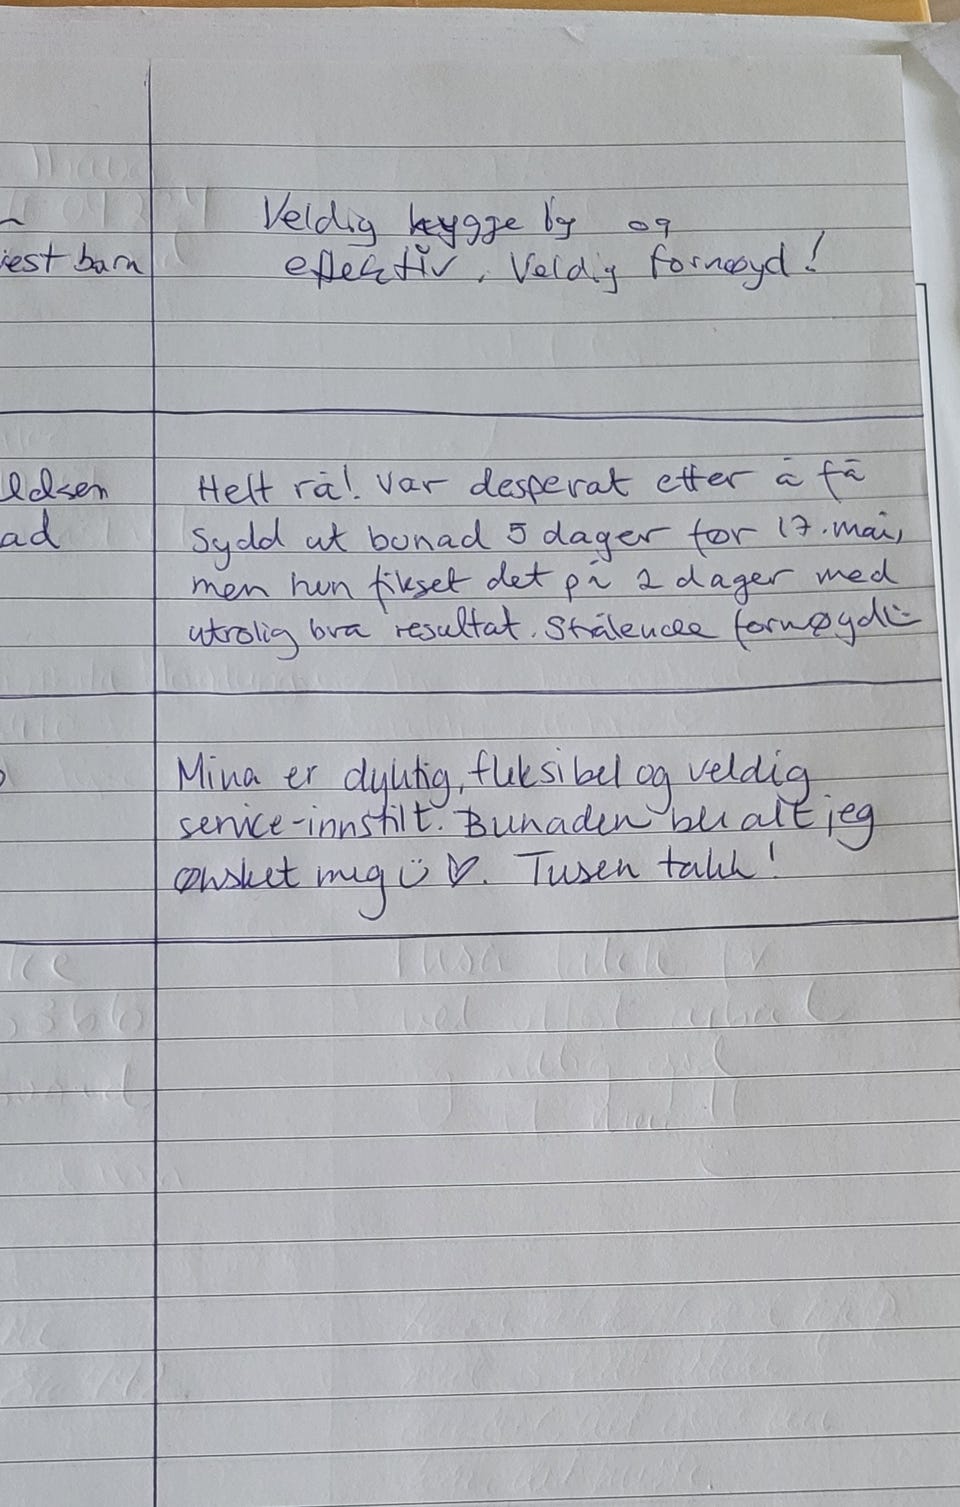 Veldig hygge     og
iest barn effektiv. Veldig fornøyd!
ldsen Helt rå! Var desperat etter å få
ad sydd ut bunad 5 dager før 17. mai,
men hun fikset det på 2 dager med
utrolig bra resultat. Strålende fornøyd
Mina er dyktig, fleksibel og veldig
service-innstilt. Bunaden ble alt jeg
ønsket meg ü ♡. Tusen takk!